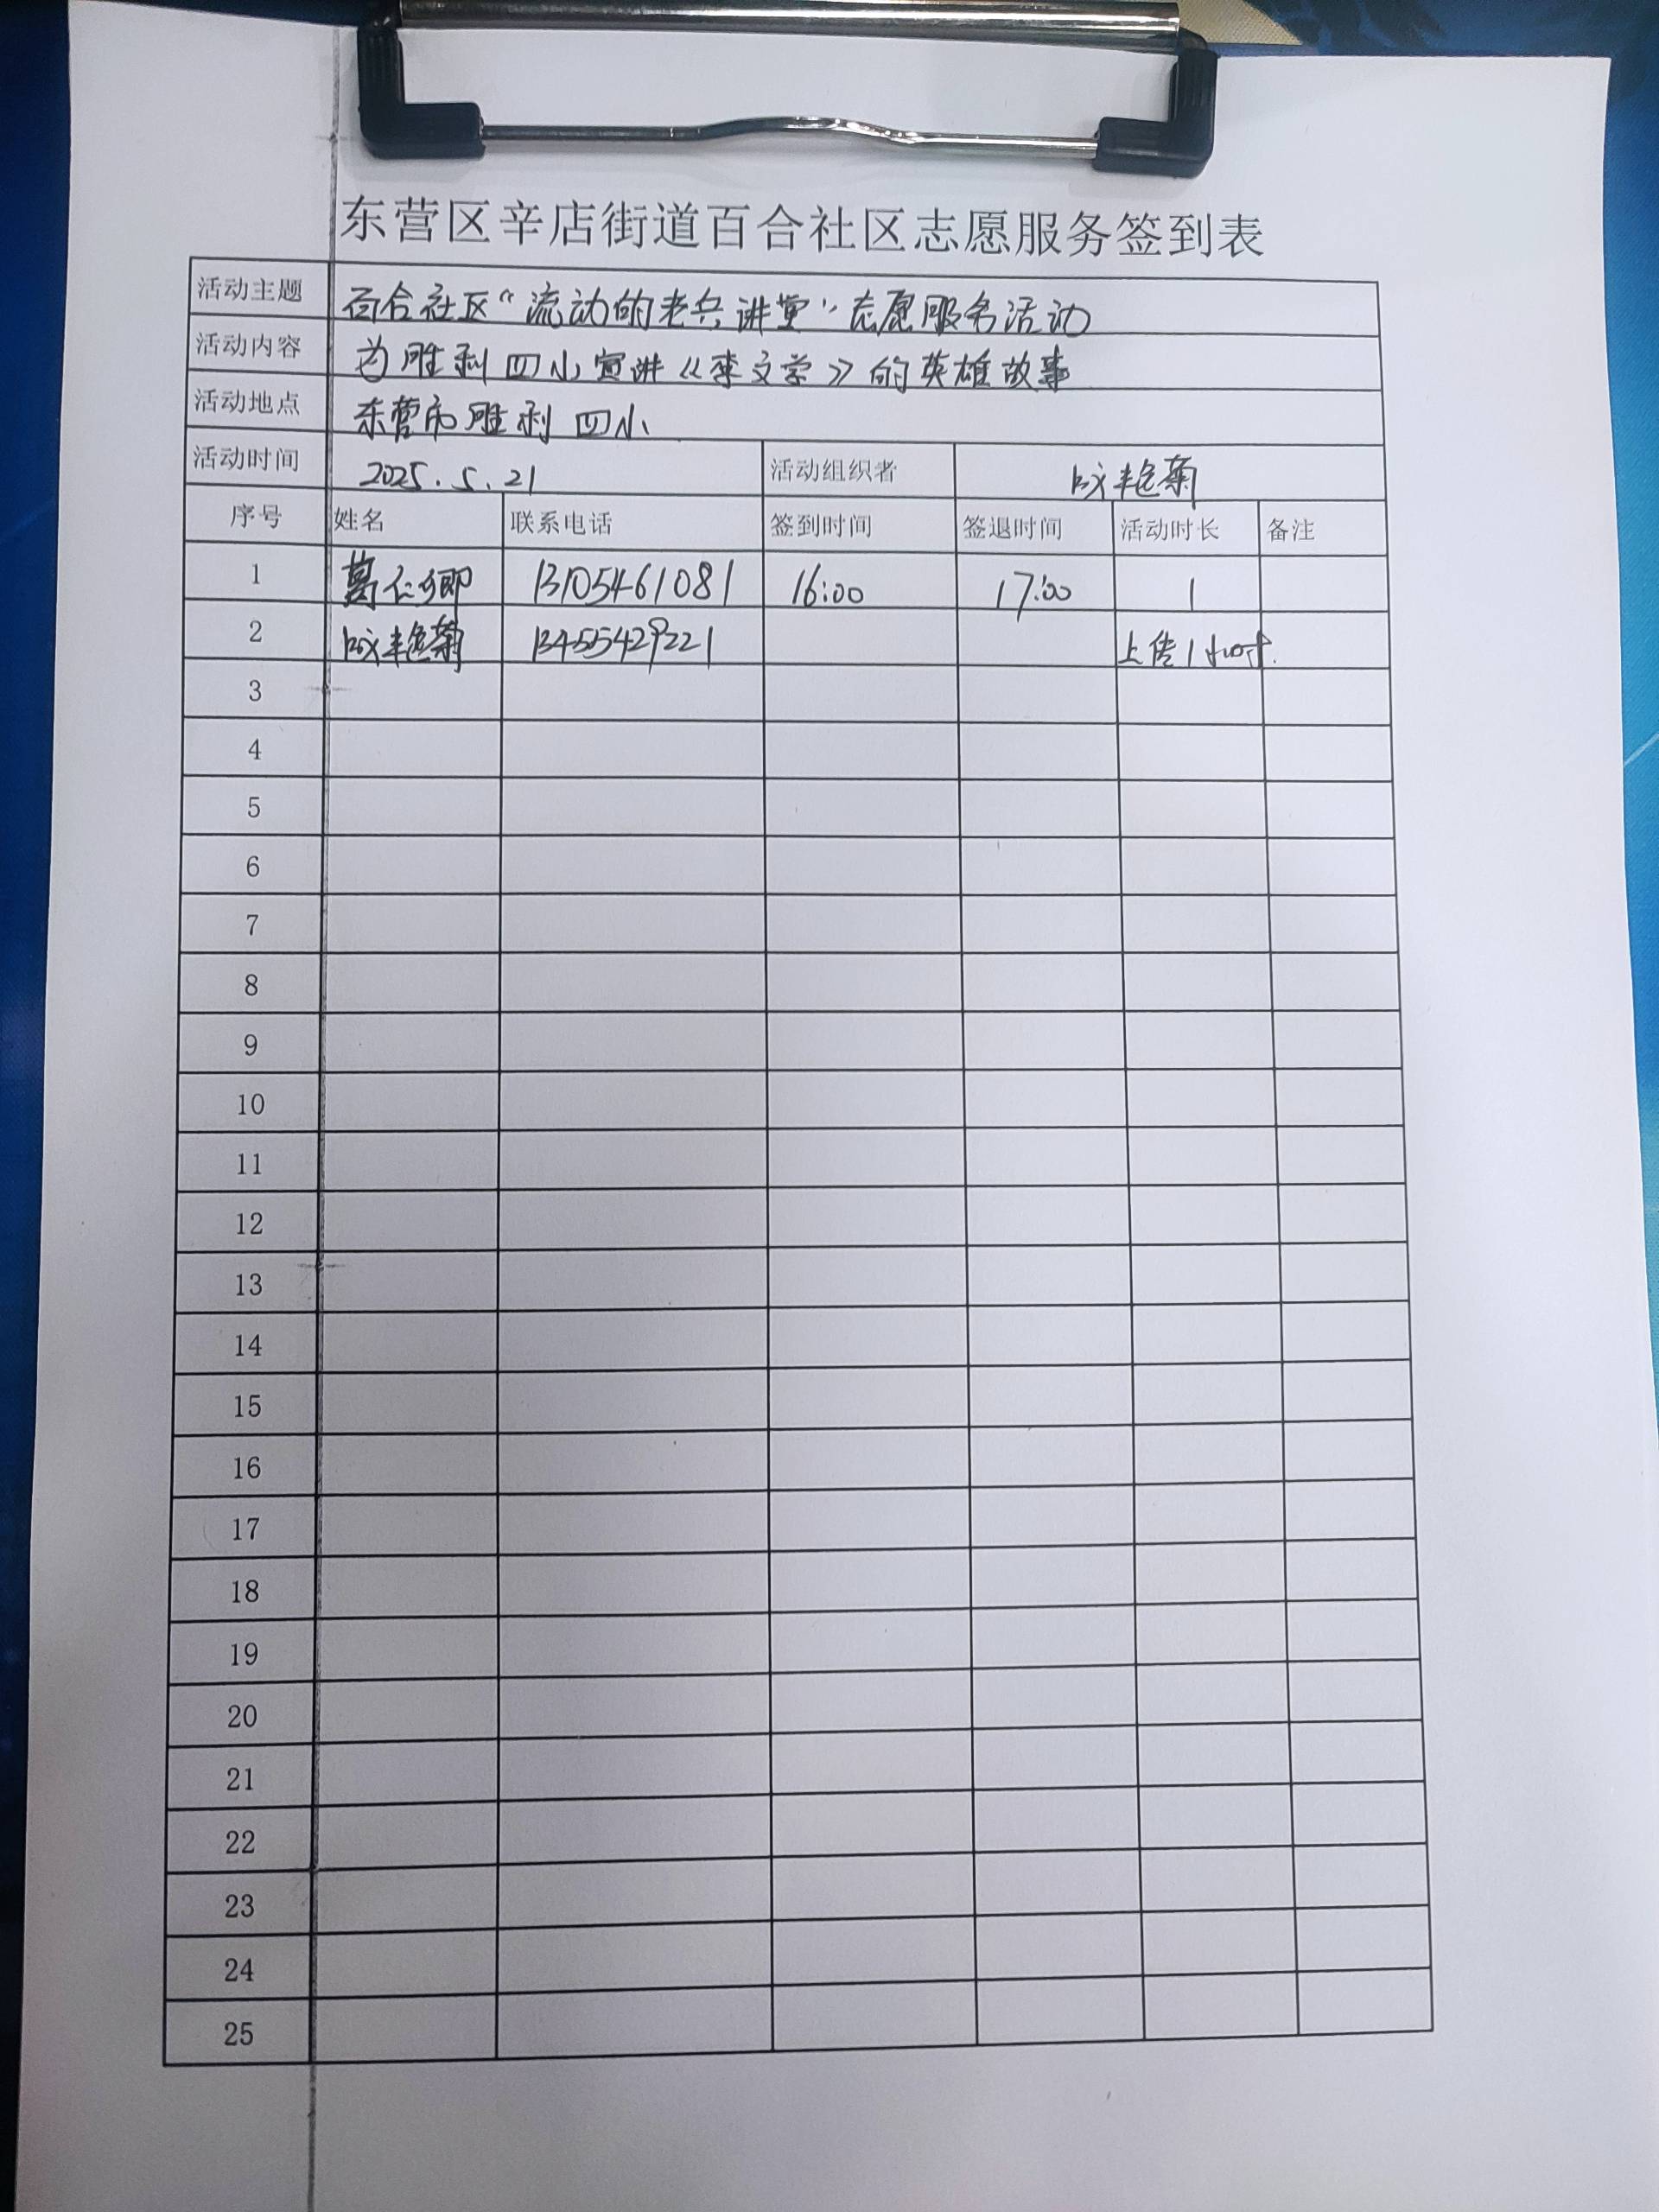 东营区辛店街道百合社区志愿服务签到表
活动主题 百合社区“流动的老兵讲堂”志愿服务活动
活动内容 为胜利四小宣讲《李文学》的英雄故事
活动地点 东营市胜利四小
活动时间 2025.5.21 活动组织者 战艳菊
序号 姓名 联系电话 签到时间 签退时间 活动时长 备注
1 葛仁卿 13105461081 16:00 17:00 1
2 战艳菊 13455429221 上传1小时.
3
4
5
6
7
8
9
10
11
12
13
14
15
16
17
18
19
20
21
22
23
24
25